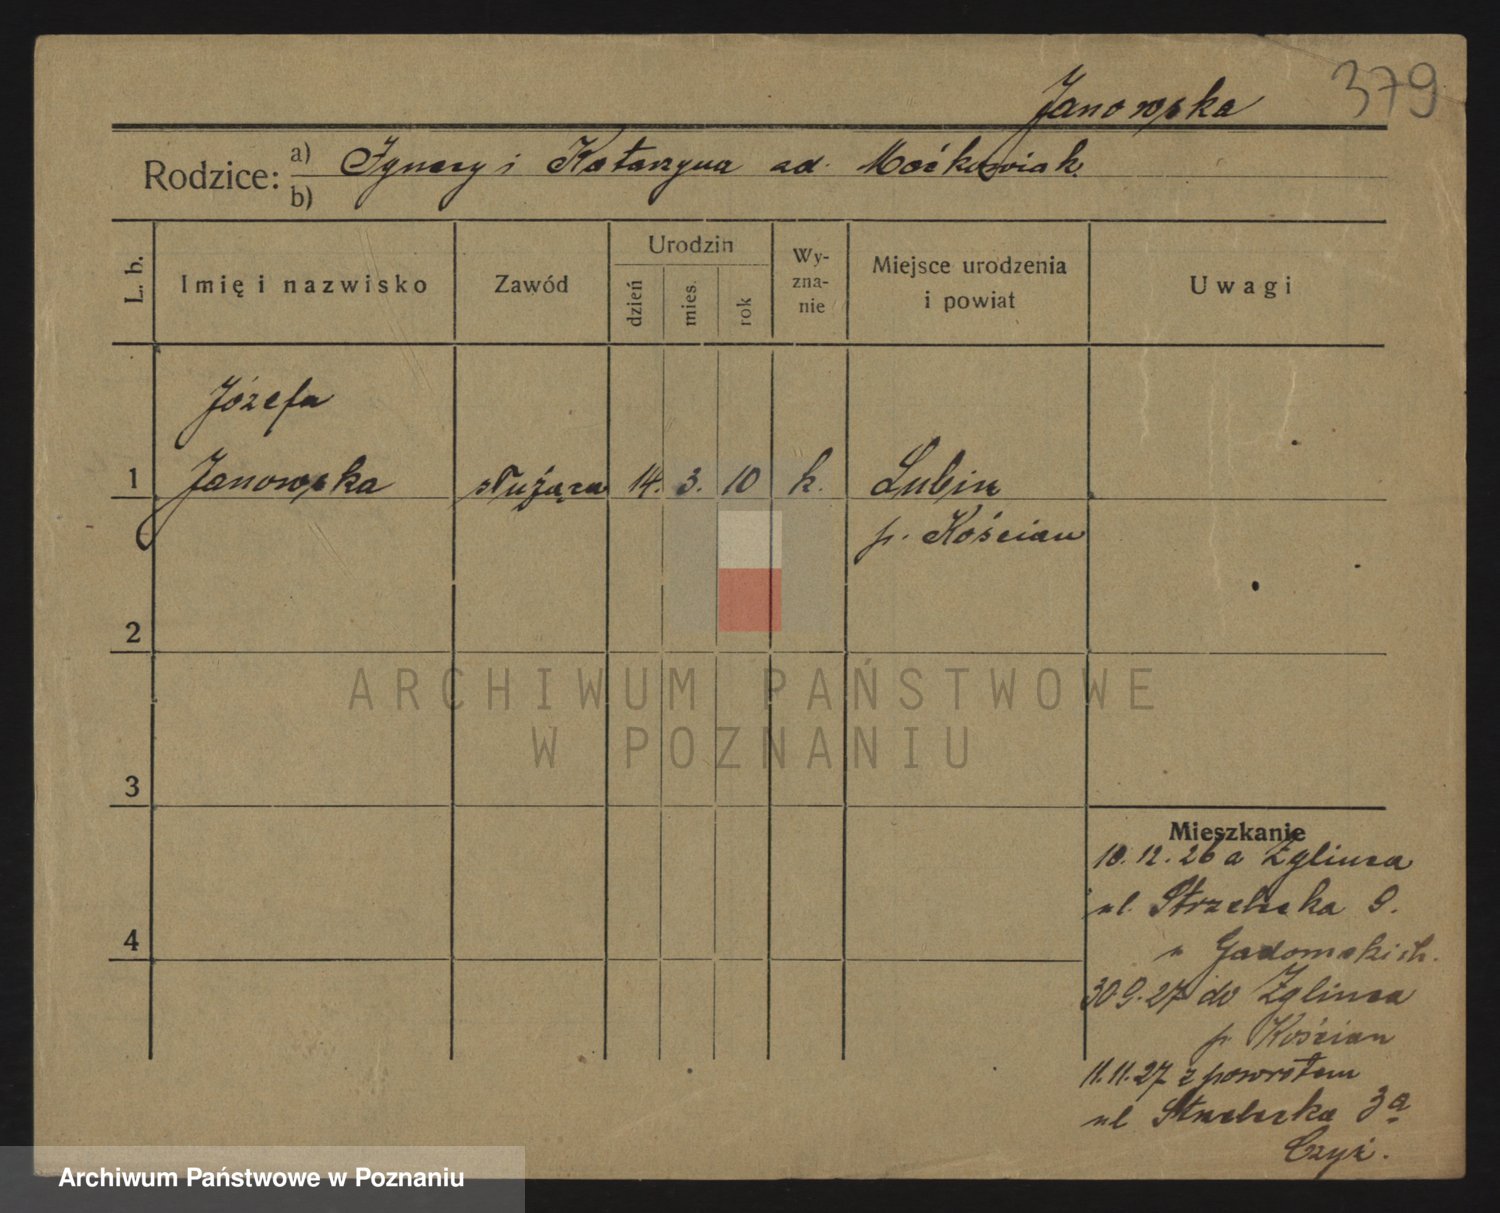 379
Janowska
Rodzice: a) Ignacy i Katarzyna zd. Moćkowiak
b)
L. b.
Imię i nazwisko
Zawód
Urodzin
dzień
mies.
rok
Wy-
zna-
nie
Miejsce urodzenia
i powiat
Uwagi
Józefa
1 Janowska służąca 14. 3. 10 k. Lubin
p. Kościan
2
ARCHIWUM PAŃSTWOWE
W POZNANIU
3
4
Mieszkanie
10.12.26 z Zglinca
ul. Strzelecka 9.
u Gadomskich.
30.9.27 do Zglinca
p. Kościan
11.11.27 z powrotem
ul Strzelecka 3a
Czyż.
Archiwum Państwowe w Poznaniu